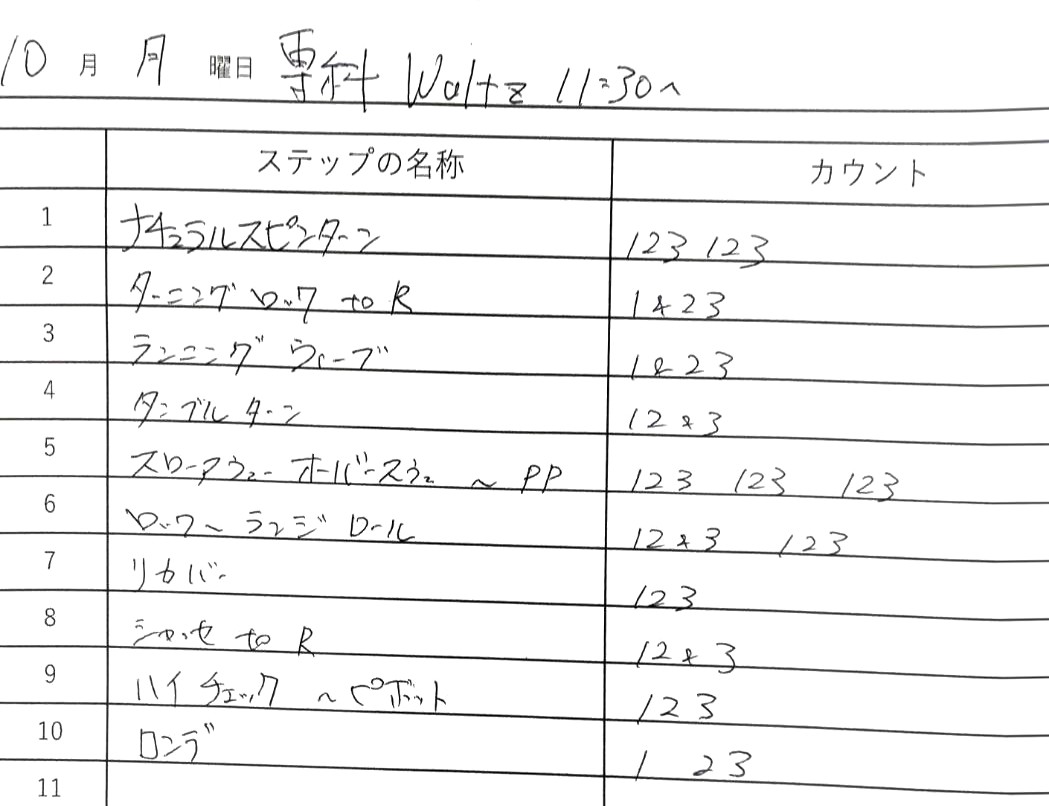 10 月 月 曜日 専科 Waltz 11:30~
ステップの名称 カウント
1 ナチュラルスピンターン 123 123
2 ターニングロック to R 1&23
3 ランニング ウィーブ 1&23
4 タンブル ターン 12&3
5 スローアウェー オーバースウェ ~ PP 123 123 123
6 ロック~ランジ ロール 12&3 123
7 リカバー 123
8 シャッセ to R 12&3
9 ハイ チェック ~ピボット 123
10 ロンデ 1 23
11